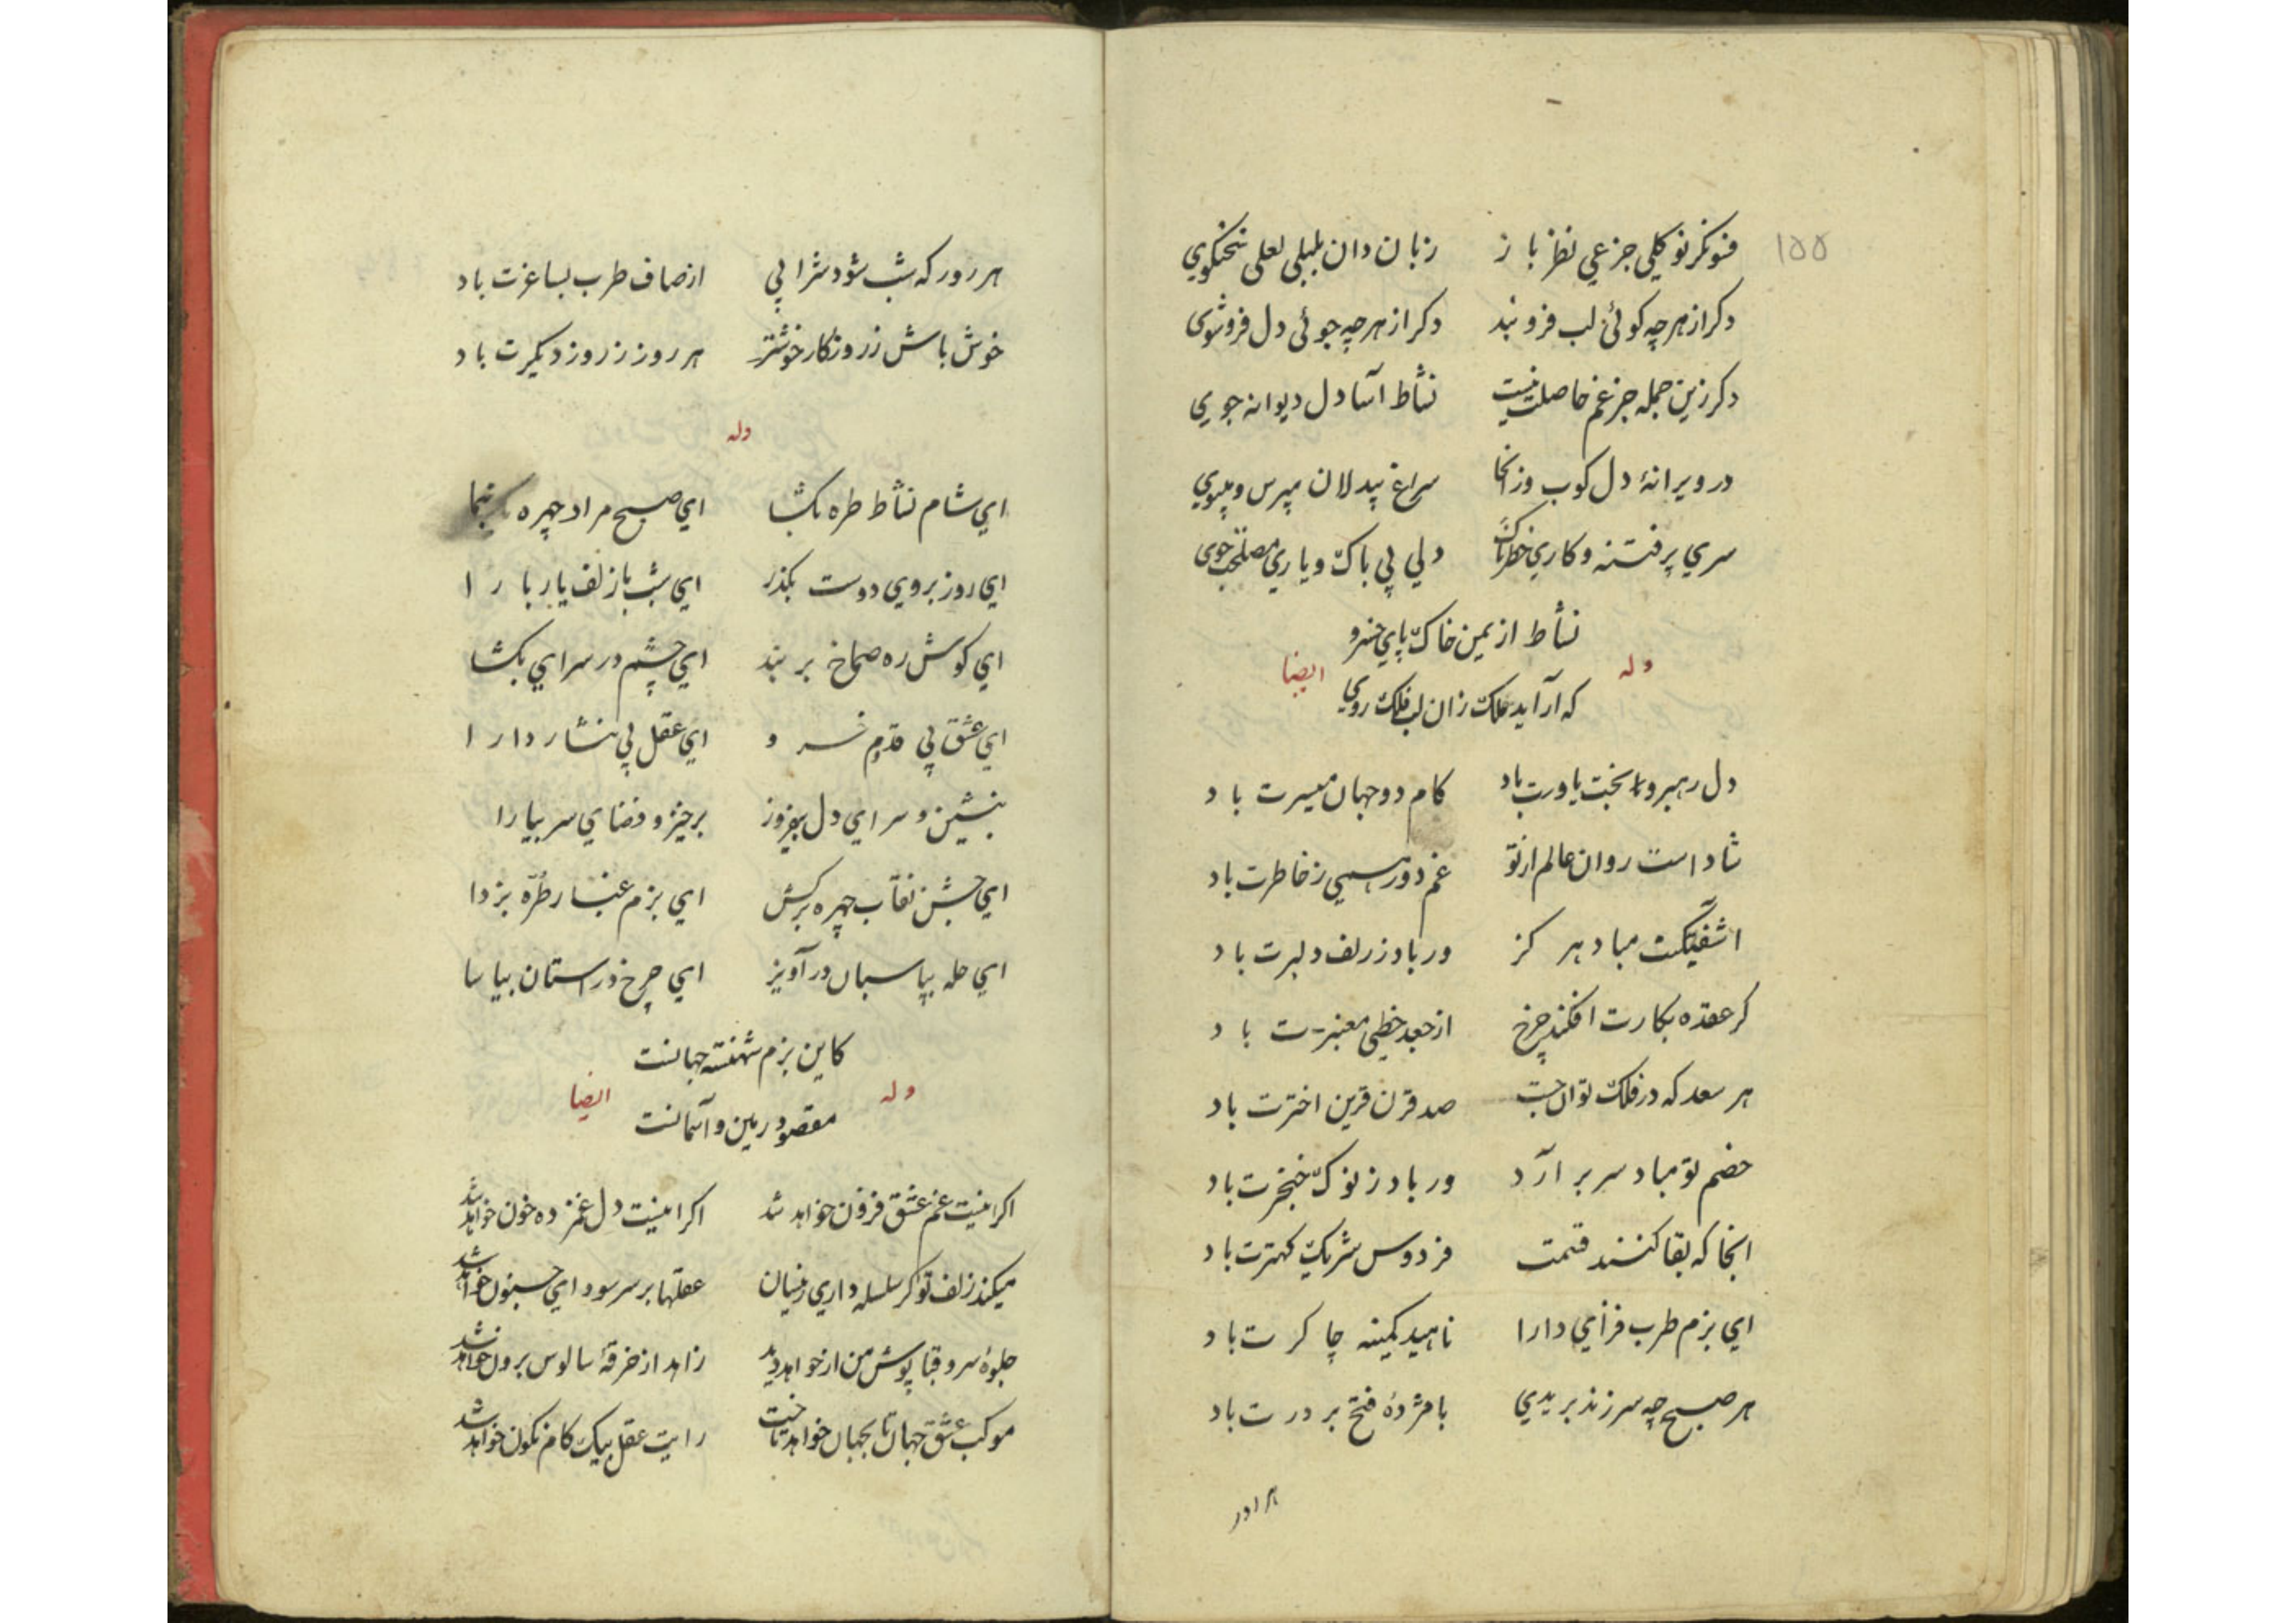 ۱۵۵
فسونگر نوگلی جزعی نظر باز زبان دان بلبلی لعلی سخنگوی
دگر از هر چه گوئی لب فرو بند دگر از هر چه جوئی دل فروشوی
دگر زین جمله جز غم حاصلت نیست نشاط آسا دل دیوانه جوی
در ویرانهٔ دل کوب وزانجا سراغ بیدلان میپرس و میپوی
سری پر فتنه و کاری خطرناک دلی بی باک و یاری مصلحت جوی
نشاط از یمن خاک پای خسرو
وله ایضا
که آراید ملک زان لب فلک روی
دل رهبر و بخت یاورت باد کام دو جهان میسرت باد
شاد است روان عالم از تو غم دور همی ز خاطرت باد
آشفتگیت مباد هرگز ور باد ز زلف دلبرت باد
گر عقده بکارت افکند چرخ از جعد خطی معنبرت باد
هر سعد که در فلک توان جست صد قرن قرین اخترت باد
خصم تو مباد سر بر آرد ور باد ز نوک خنجرت باد
آنجا که بقا کنند قسمت فردوس شریک کهترت باد
ای بزم طرب فزای دارا ناهید کمینه چاکرت باد
هر صبح چه سر زند بریدی با مژدهٔ فتح بر درت باد
هر روز که شب شود شرابی از صاف طرب بساغرت باد
خوش باش ز روزگار خوشتر هر روز ز روز دیگرت باد
وله
ای شام نشاط طره بگشا ای صبح مراد چهره بنما
ای روز بروی دوست بگذر ای شب باز زلف یار باز آ
ای گوش ره صماخ بر بند ای چشم در سرای بگشا
ای عشق پی قدوم خسرو ای عقل پی نثار دارا
بنشین و سرای دل بیفروز برخیز و فضای سر بیارا
ای جشن نقاب چهره برکش ای بزم غبار طره بزدا
ای حله بپاسبان درآویز ای چرخ در آستان بیاسا
کاین بزم شهنشه جهانست
وله ایضا
مقصود زمین و آسمانست
اگر اینست غم عشق فزون خواهد شد اگر اینست دل غمزده خون خواهد شد
میکند زلف تو گر سلسله داری زینسان عقلها بر سر سودای جنون خواهد شد
جلوهٔ سرو قبا پوش من ار خواهد دید زاهد از خرقهٔ سالوس برون خواهد شد
موکب عشق جهان تا بجهان خواهد تاخت رایت عقل بیک گام نگون خواهد شد